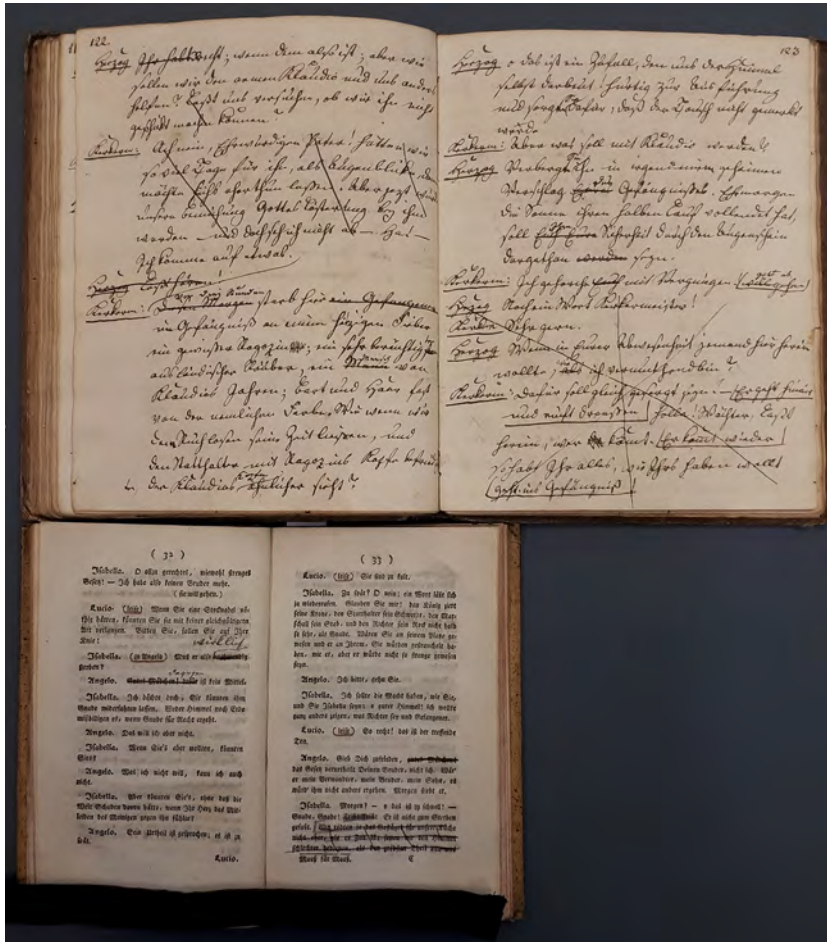 122.
Herzog Ihr habt recht; wenn dem also ist; aber wie
sollen wir den armen Klaudio und uns anders
helfen? Laßt uns versuchen, ob wir ihn nicht
geschickt machen können?
Kerkerm: Ach nein, Ehrwürdiger Pater! hätten wir
so viel Tage für ihn, als Augenblicke,
möchte sichs eher thun lassen. Aber jezt würde
unsere Bemühung Gotteslästerung bey ihm
werden — und doch seh ich nicht ab — Ha! —
Ich komme auf etwas.
Herzog Laßt hören!
Kerkerm: Diesen Morgen starb hier ein Gefangener
im Gefängniß an einem hizigen Fieber
ein gewisser Ragozin; ein sehr berüchtigter
ausländischer Räuber, ein Mann von
Klaudios Jahren; Bart und Haar fast
von der nemlichen Farbe. Wie wenn wir
den Ruchlosen seine Zeit ließen, und
den Statthalter mit Ragozins Kopfe
der Klaudios ähnlicher sieht?
123
Herzog o das ist ein Zufall, den uns der Himmel
selbst darbeut! hurtig zur Ausführung
und sorgt dafür, daß der Tausch nicht gemerkt
werde
Kerkerm: Aber was soll mit Klaudio werden?
Herzog Verbergt ihn in irgend einem geheimen
Verschlag Gefängnisses. Eh morgen
die Sonne ihren halben Lauf vollendet hat,
soll Eure Sicherheit durch den Augenschein
dargethan werden seyn.
Kerkerm: Ich gehorche Euch mit Vergnügen. (will gehen)
Herzog Noch ein Wort Kerkermeister!
Kerker Sehr gern.
Herzog Wenn in Eurer Abwesenheit jemand hier herein
wollte, ich vermuthend bin?
Kerkerm: Dafür soll gleich gesorgt seyn! — (Er geht hinaus
und ruft draussen) Holla! Wächter, laßt
herein, wer da kömt. (Er kömt wieder)
So habt Ihr alles, wie Ihrs haben wollt
(geht ins Gefängniß)
( 32 )
Isabella. O allzu gerechtes, wiewohl strenges
Gesetz! — Ich habe also keinen Bruder mehr.
(sie will gehen.)
Lucio. (leise) Wenn Sie eine Stecknadel nö-
thig hätten, könnten Sie sie mit keiner gleichgültigern
Art verlangen. Bitten Sie, fallen Sie auf Ihre
Knie!
wirklich
Isabella. (zu Angelo) Muß er also nothwendig
sterben?
Angelo. Gutes Mädchen! dafür ist kein Mittel.
Isabella. Ich dächte doch, Sie könnten ihm
Gnade widerfahren lassen. Weder Himmel noch Erde
mißbilligen es, wenn Gnade für Recht ergeht.
Angelo. Das will ich aber nicht.
Isabella. Wenn Sie's aber wollten, könnten
Sies?
Angelo. Was ich nicht will, kann ich auch
nicht.
Isabella. Aber könnten Sie's, ohne daß die
Welt Schaden davon hätte; wenn Ihr Herz das Mit-
leiden des Meinigen gegen ihn fühlte?
Angelo. Sein Urtheil ist gesprochen; es ist zu
spät.
Lucio.
( 33 )
Lucio. (leise) Sie sind zu kalt.
Isabella. Zu spät? O nein; ein Wort läßt sich
ja wiederrufen. Glauben Sie mir: den König ziert
seine Krone, den Statthalter sein Schwerdt, den Mar-
schall sein Stab, und den Richter sein Rock nicht halb
so sehr, als Gnade. Wären Sie an seinem Platze ge-
wesen und er an Ihrem, Sie würden gestrauchelt ha-
ben, wie er, aber er würde nicht so strenge gewesen
seyn.
Angelo. Ich bitte, gehn Sie.
Isabella. Ich sollte die Macht haben, wie Sie,
und Sie Isabella seyn; o guter Himmel! ich wollte
ganz anders zeigen, was Richter sey und Gefangener.
Lucio. (leise) So recht! das ist der treffende
Ton.
Angelo. Gieb Dich zufrieden, gutes Mädchen!
das Gesetz verurtheilt Deinen Bruder, nicht ich. Wär'
er mein Verwandter, mein Bruder, mein Sohn, es
würd' ihm nicht anders ergehen. Morgen stirbt er.
Isabella. Morgen! — o das ist zu schnell! —
Gnade, Gnade! Er ist nicht zum Sterben
gefaßt.
Maaß für Maaß. C